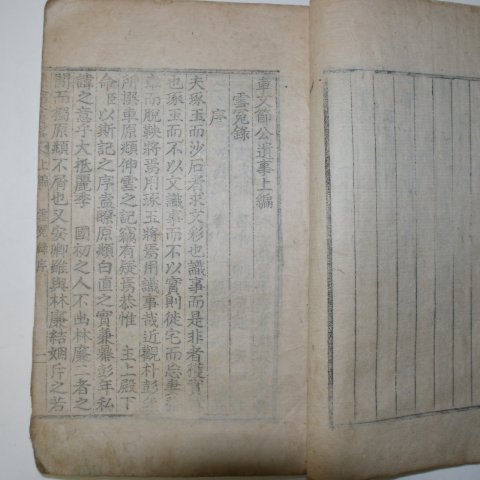 車文節公遺事上編
雪冤錄
序
夫琢玉而沙石者求文彩也識事而是非者獲實
也琢玉而不以文識事而不以實則徙宅而忘妻
章而脫鞅將焉用琢玉將焉用識事哉近觀朴彭年
所撰車原頫仰雲之記竊有疑焉恭惟 主上殿下
命臣以斯記之序蓋暸原頫白直之實兼暴彭年私
諱之意乎大抵麗季 國初之人不出林廉二者之
間而獨原頫不屑也又安卿雖與林廉結姻斥之若
上編 雪冤錄序 一